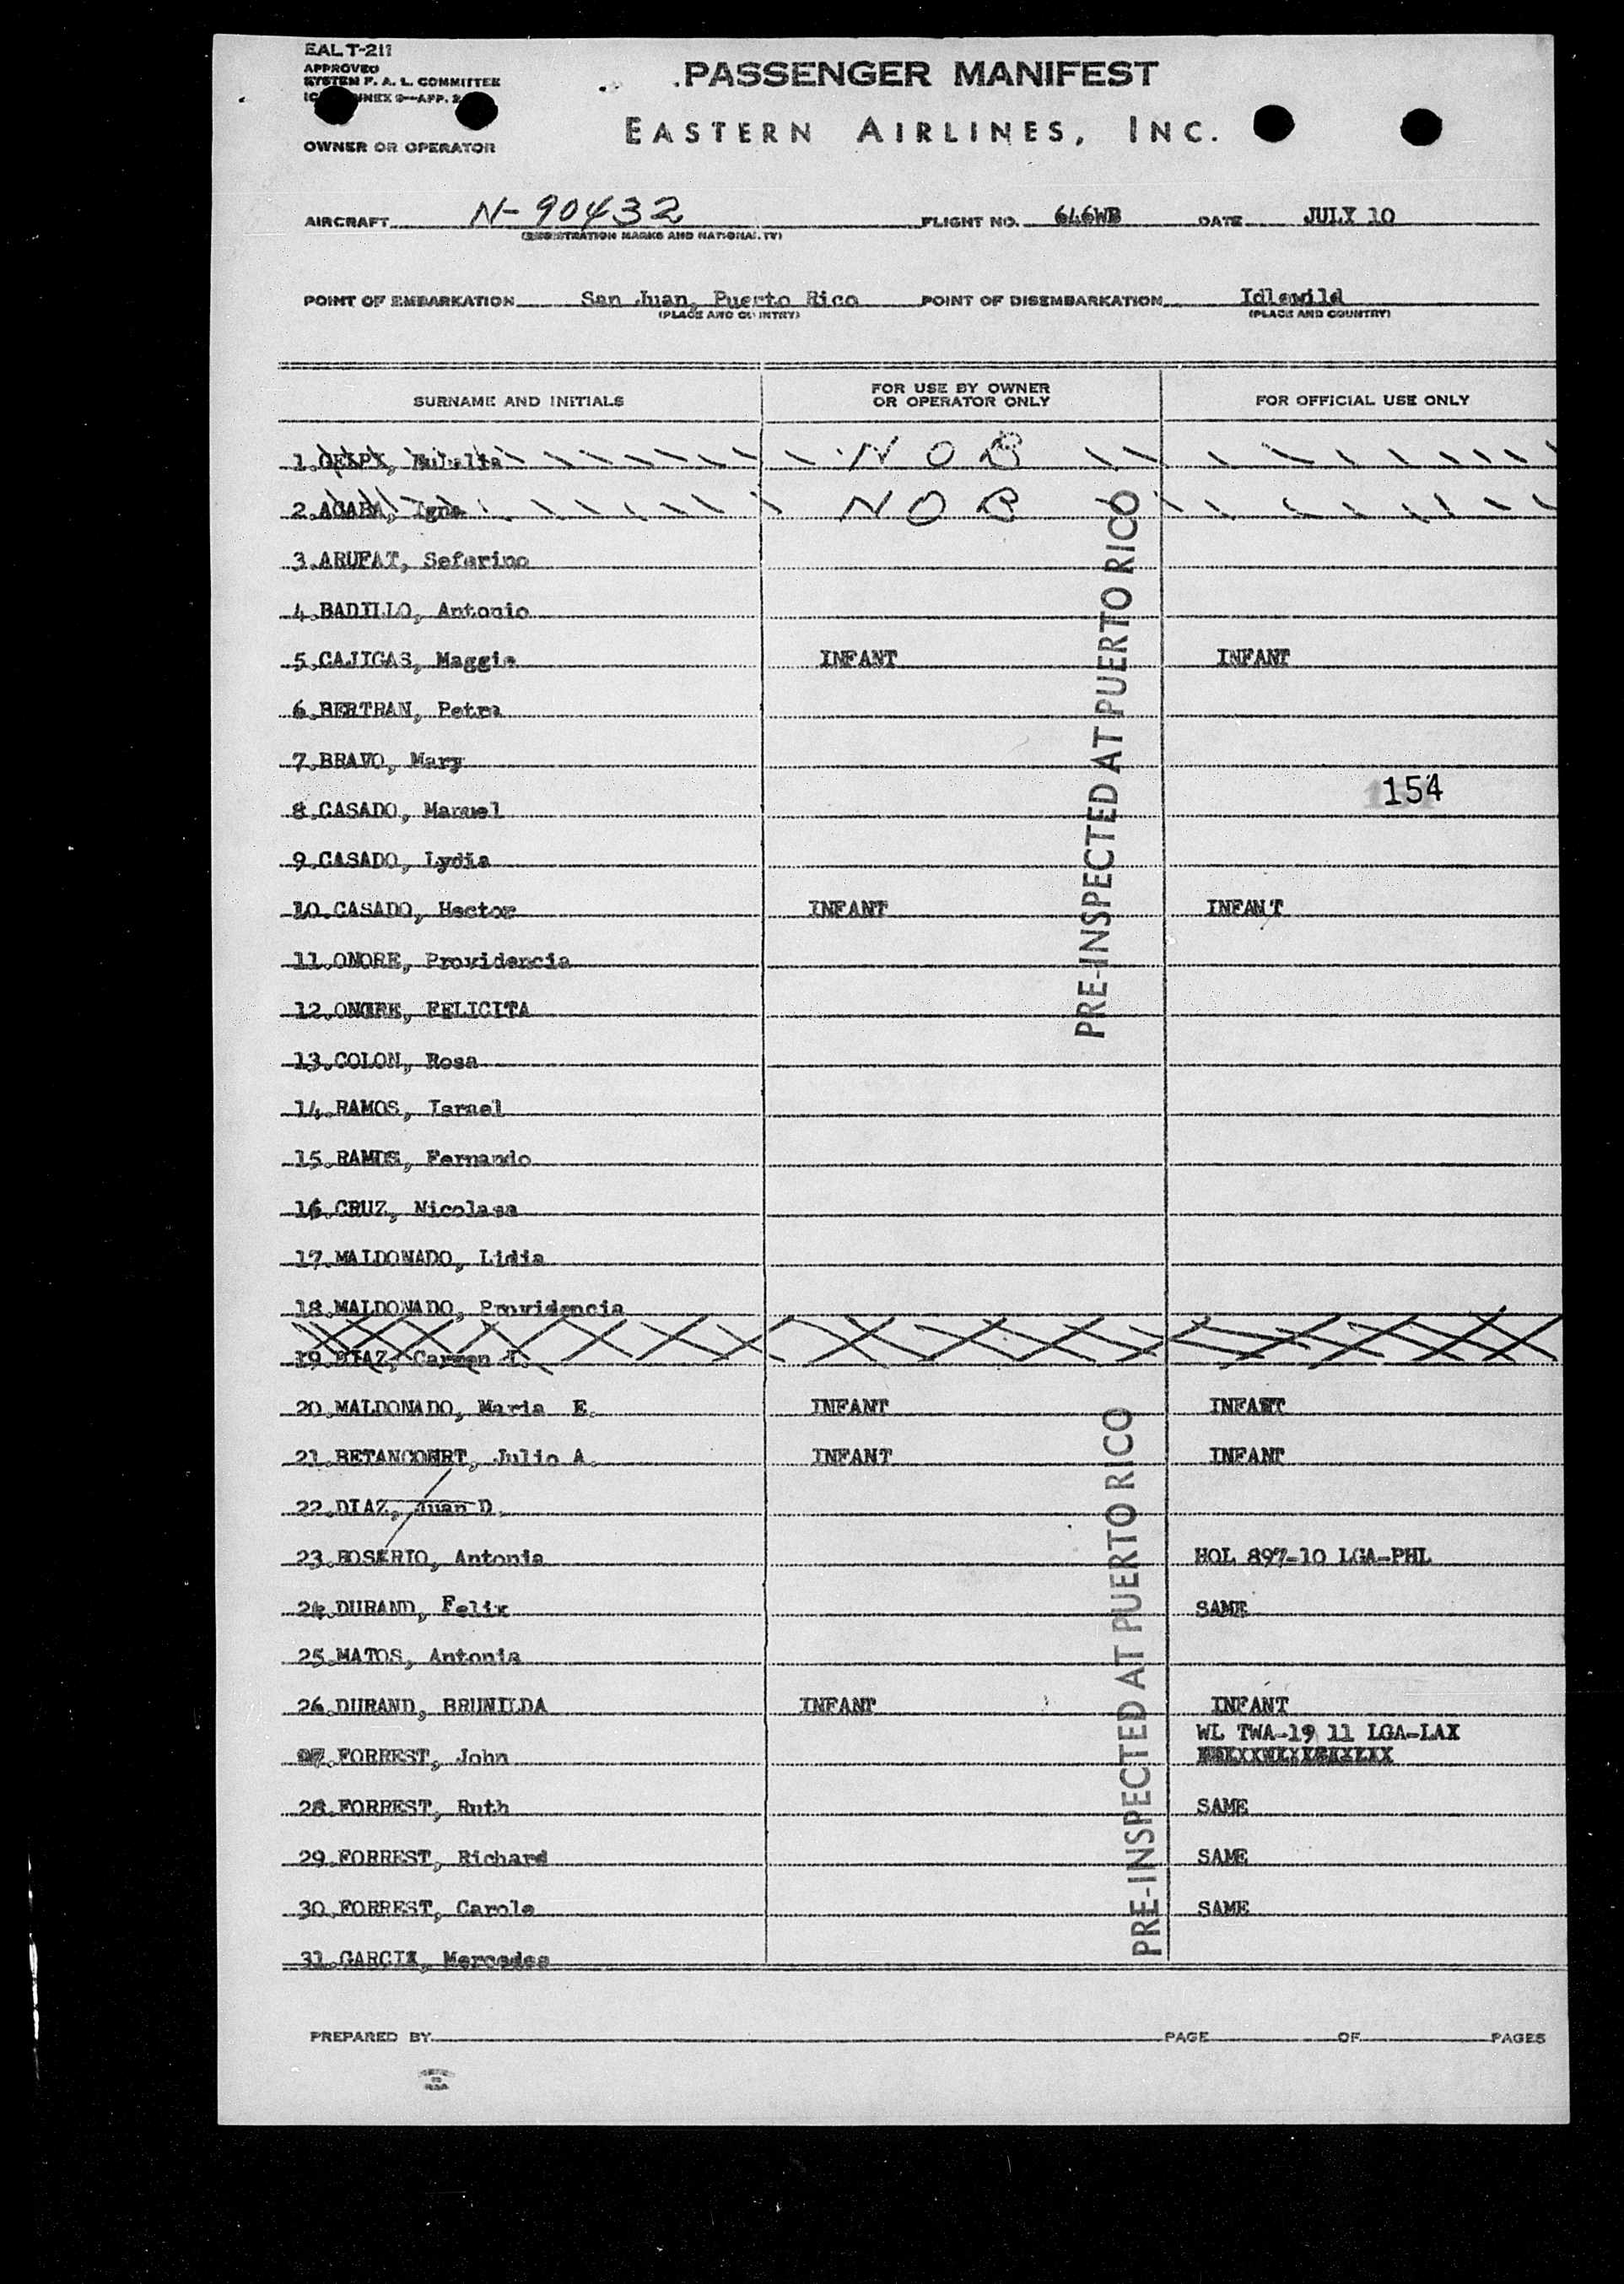 EAL T-211
APPROVED
SYSTEM F. A. L. COMMITTEE
ANNEX 9—APP. 2
OWNER OR OPERATOR
PASSENGER MANIFEST
EASTERN AIRLINES, INC.
AIRCRAFT N-90432 FLIGHT NO. 646WB DATE JULY 10
(REGISTRATION MARKS AND NATIONALITY)
POINT OF EMBARKATION San Juan, Puerto Rico POINT OF DISEMBARKATION Idlewild
(PLACE AND COUNTRY) (PLACE AND COUNTRY)
SURNAME AND INITIALS FOR USE BY OWNER OR OPERATOR ONLY FOR OFFICIAL USE ONLY
1. NOB
2. ACABA, Igna NOB
3. ARUFAT, Seferino
4. BADILLO, Antonio
5. CAJIGAS, Maggie INFANT INFANT
6. BERTRAN, Petra
7. BRAVO, Mary
154
8. CASADO, Manuel
9. CASADO, Lydia
10. CASADO, Hector INFANT INFANT
11. ONORE, Providencia
12. ONORE, FELICITA
13. COLON, Rosa
14. RAMOS, Israel
15. RAMOS, Fernando
16. CRUZ, Nicolasa
17. MALDONADO, Lidia
18. MALDONADO, Providencia
19. DIAZ, Carmen I.
20. MALDONADO, Maria E. INFANT INFANT
21. BETANCOURT, Julio A. INFANT INFANT
22. DIAZ, Juan D.
23. ROSERIO, Antonia HOL 897-10 LGA-PHL
24. DURAND, Felix SAME
25. MATOS, Antonia
26. DURAND, BRUNILDA INFANT INFANT
WL TWA-19 11 LGA-LAX
27. FORREST, John
28. FORREST, Ruth SAME
29. FORREST, Richard SAME
30. FORREST, Carole SAME
31. GARCIA, Mercedes
PRE-INSPECTED AT PUERTO RICO
PRE-INSPECTED AT PUERTO RICO
PREPARED BY PAGE OF PAGES